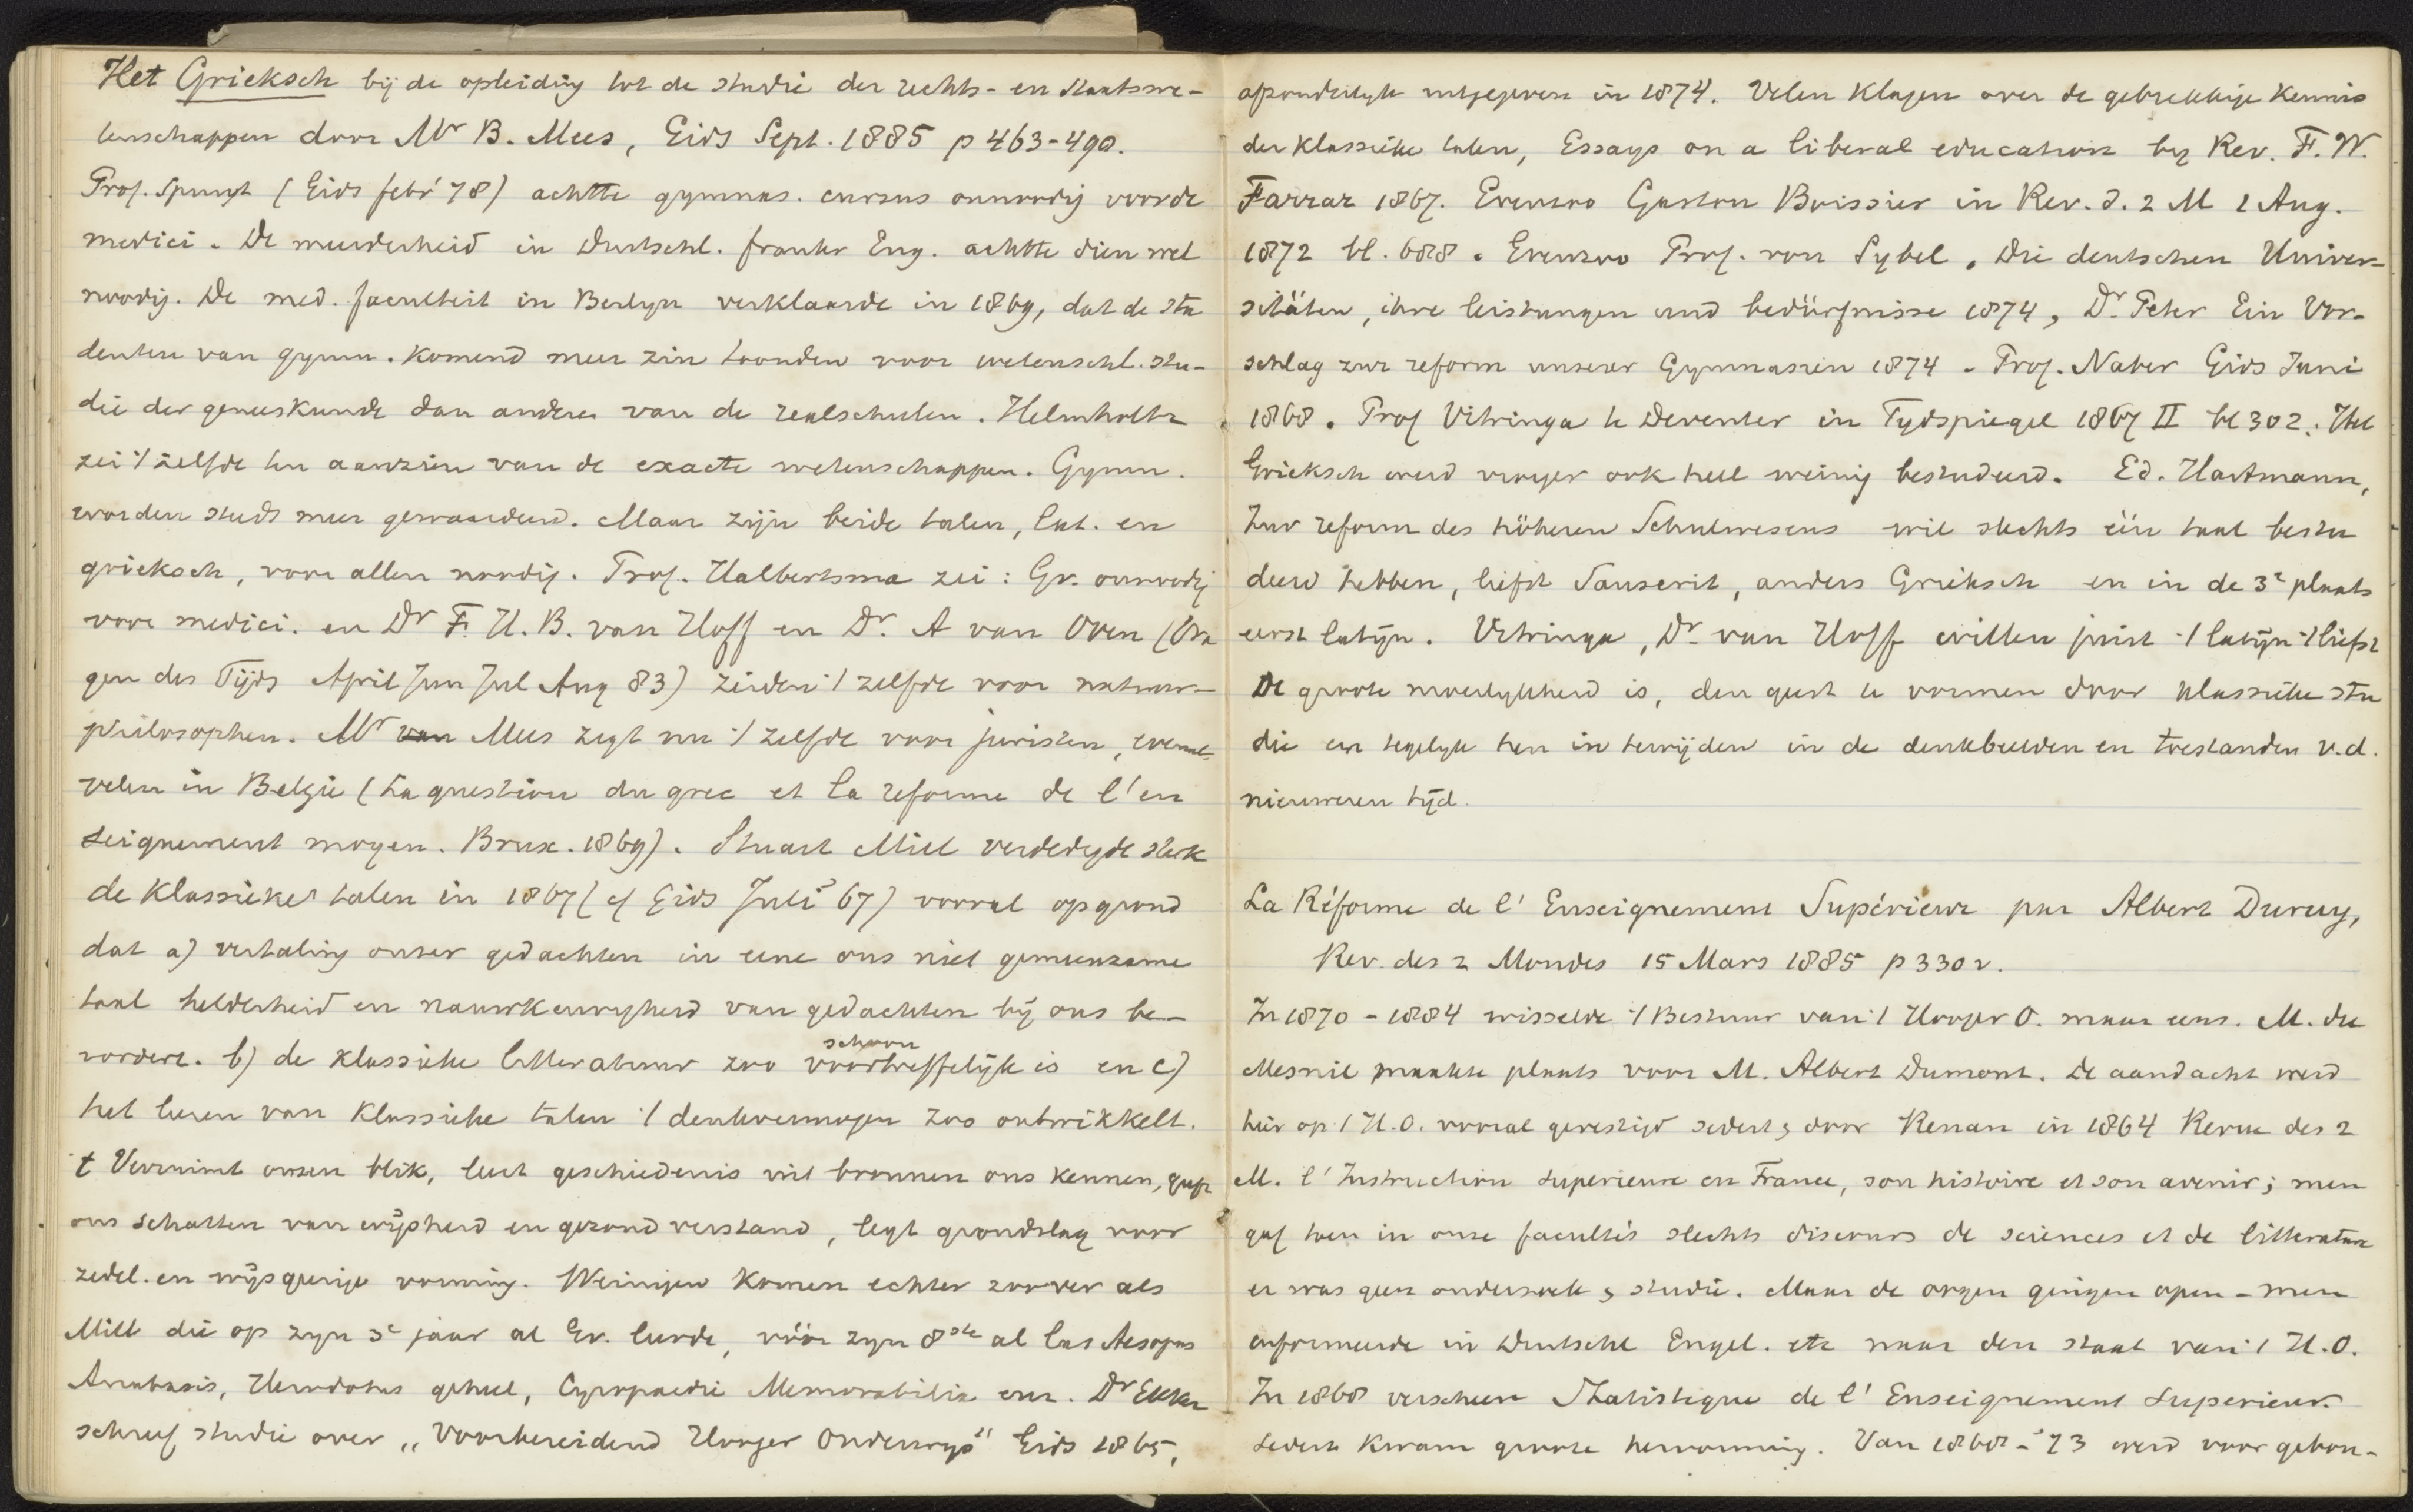 Het Grieksch bij de opleiding tot de studie der rechts- en staatswe-
tenschappen door Mr B. Mees, Gids Sept. 1885 p 463-490.
Prof. Spruyt (Gids febr '78) achtte gymnas. cursus onnoodig voor de
medici. De meerderheid in Duitschl. frankr Eng. achtte dien wel
noodig. De med. faculteit in Berlyn verklaarde in 1869, dat de stu
denten van gymn. komend meer zin toonden voor wetenschl. stu-
die der geneeskunde dan anderen van de realschulen. Helmholtz
zei 't zelfde ten aanzien van de exacte wetenschappen. Gymn.
worden steeds meer gewaardeerd. Maar zijn beide talen, lat. en
grieksch, voor allen noodig. Prof. Halbertsma zei: Gr. onnoodig
voor medici. en Dr F. H. B. van Hoff en Dr. A van Oven (Vra
gen des Tijds April Jun Jul Aug 83) zeiden 't zelfde voor natuur-
philosophen. Mr van Mees zegt nu 't zelfde voor juristen, evenals
velen in België (La question du grec et la reforme de l'en
seignement moyen. Brux. 1869). Stuart Mill verdedigde sterk
de Klassieke talen in 1867 (cf Gids Juli '67) vooral op grond
dat a) vertaling onzer gedachten in eene ons niet gemeenzame
taal helderheid en nauwkeurigheid van gedachten bij ons be-
vordert. b) de klassieke litteratuur zoo voortreffelijk schoon is en c)
het leeren van Klassieke talen 't denkvermogen zoo ontwikkelt.
't Verruimt onzen blik, leert geschiedenis uit bronnen ons kennen, geeft
ons schatten van wijsheid en gezond verstand, legt grondslag voor
zedel. en wijsgeerige vorming. Weinigen komen echter zoover als
Mill die op zyn 3e jaar al Gr. leerde, vóór zyn 8ste al las Aesopus
Anabasis, Herodotus geheel, Cyropaedie Memorabilia enz. Dr Ekker
schreef studie over „Voorbereidend Hooger Onderwys" Gids 1865,
afzonderlyk uitgegeven in 1874. Velen klagen over de gebrekkige kennis
der klassieke talen, Essays on a liberal education by Rev. F. W.
Farrar 1867. Evenzoo Gaston Boissier in Rev. d. 2 M 1 Aug.
1872 bl. 688. Evenzoo Prof. von Sybel. Die deutschen Univer-
sitäten, ihre leistungen und bedürfnisse 1874, Dr. Peter Ein Vor-
schlag zur reform unserer Gymnasien 1874 - Prof. Naber Gids Juni
1868. Prof Vitringa te Deventer in Tydspiegel 1867 II bl 302. Het
Grieksch werd vroeger ook heel weinig bestudeerd. Ed. Hartmann,
Zur reform des höheren Schulwesens wil slechts één taal bestu
deerd hebben, liefst Sanscrit, anders Grieksch en in de 3e plaats
eerst latijn. Vitringa, Dr. van Hoff willen juist 't latijn 't liefst
De groote moeilykheid is, den geest te vormen door klassieke stu
die en tegelyk hen in te wijden in de denkbeelden en toestanden v.d.
nieuweren tijd.
La Réforme de l' Enseignement Supérieur par Albert Duruy,
Rev. des 2 Mondes 15 Mars 1885 p 330 v.
In 1870-1884 wisselde 't Bestuur van 't Hooger O. maar eens. M. du
Mesnil maakte plaats voor M. Albert Dumont. De aandacht werd
hier op 't H.O. vooral gevestigd sedert door Renan in 1864 Revue des 2
M. l' Instruction superieure en France, son histoire et son avenir; men
gaf toen in onze facultés slechts discours de sciences et de litterature
er was geen onderzoek, studie. Maar de oogen gingen open - men
informeerde in Duitschl Engel. etc naar den staat van 't H.O.
In 1868 verscheen Statistique de l' Enseignement superieur.
Sedert kwam groote hervorming. Van 1868-'73 werd voor gebou-